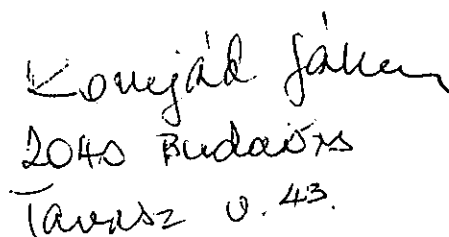 Komjád János
2040 Budaörs
Tavasz u. 43.